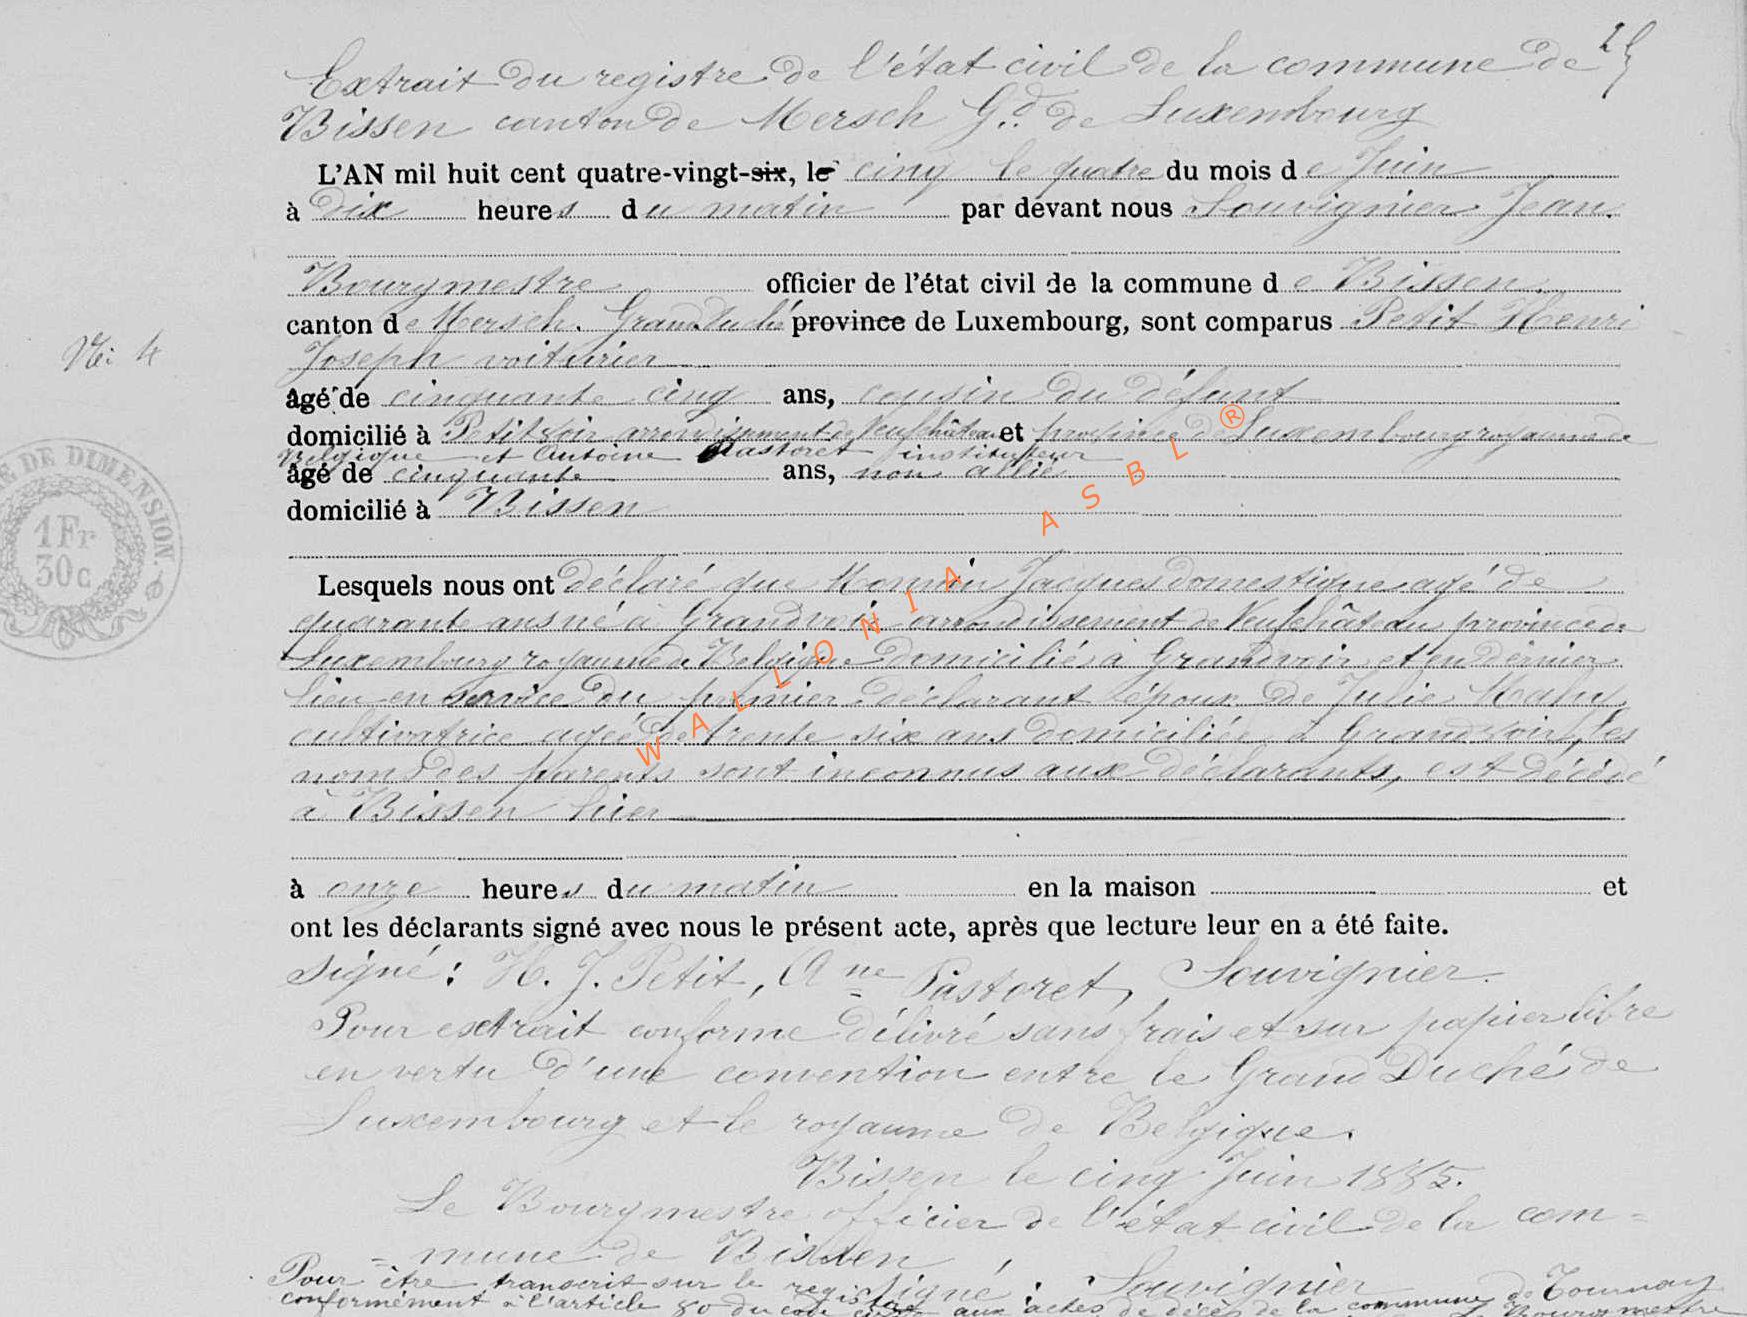 25
Extrait du registre de l'état civil de la commune de
Bissen canton de Mersch G.d. de Luxembourg
L'AN mil huit cent quatre-vingt-six, le cinq le quatre du mois de Juin
à dix heures du matin par devant nous Souvignier Jean.
Bourgmestre officier de l'état civil de la commune de Bissen.
canton de Mersch. Grand Duché province de Luxembourg, sont comparus Petit Henri
No: 4
Joseph voiturier
âgé de cinquante cinq ans, cousin du défunt
domicilié à Petitvoir arrondissement de Neufchâteau et province de Luxembourg royaume de
Belgique et Antoine Pastoret instituteur
âgé de cinquante ans, non allié
domicilié à Bissen
DE DIMENSION.
1 Fr
30c
Lesquels nous ont déclaré que Jacques domestique agé de
quarante ans né à Grandvoir arrondissement de Neufchâteau province de
Luxembourg royaume de Belgique domicilié à Grandvoir et en dernier
lieu en service du premier déclarant époux de Julie Mahy
cultivatrice agée de trente six ans domiciliée à Grandvoir, les
noms des parents sont inconnus aux déclarants, est décédé
à Bissen hier
à onze heures du matin en la maison et
ont les déclarants signé avec nous le présent acte, après que lecture leur en a été faite.
signé: H. J. Petit, Ane Pastoret, Souvignier.
Pour extrait conforme délivré sans frais et sur papier libre
en vertu d'une convention entre le Grand Duché de
Luxembourg et le royaume de Belgique.
Bissen le cinq Juin 1885.
Le Bourgmestre officier de l'état civil de la com=
=mune de Bissen
signé: Souvignier
Pour être transcrit sur le registre aux actes de décès de la commune de Tournay
conformément à l'article 80 du code civil
Bourgmestre
WALLONIA ASBL ®